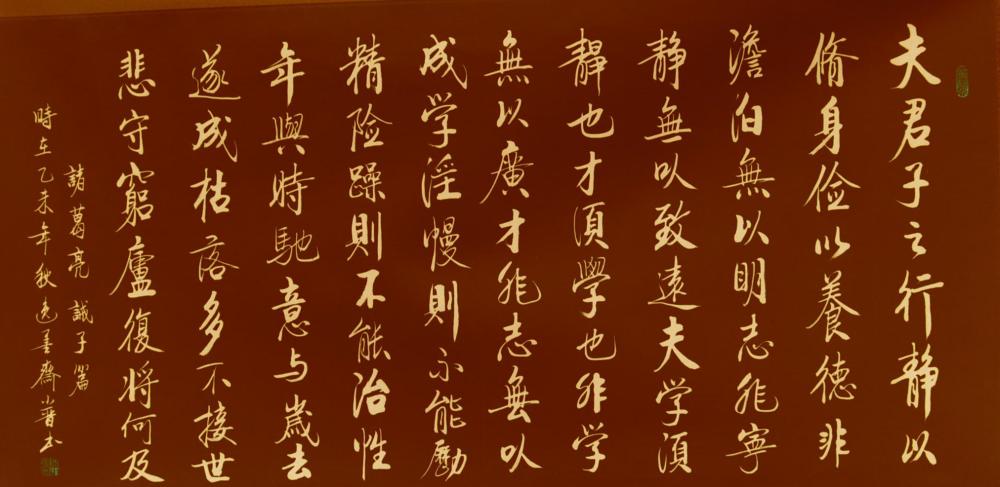 夫君子之行静以
脩身俭以養德非
澹泊無以明志非寧
静無以致遠夫学須
静也才須學也非学
無以廣才非志無以
成学淫慢則不能勵
精险躁則不能治性
年與時馳意与歲去
遂成枯落多不接世
悲守窮廬復将何及
諸葛亮誡子篇
時在乙未年秋